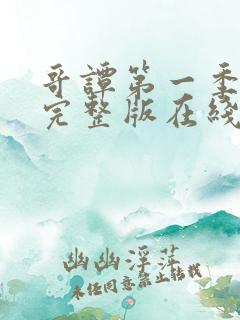 哥譚第一季
完整版在綫
幽幽浮萍
未经同意禁止转载